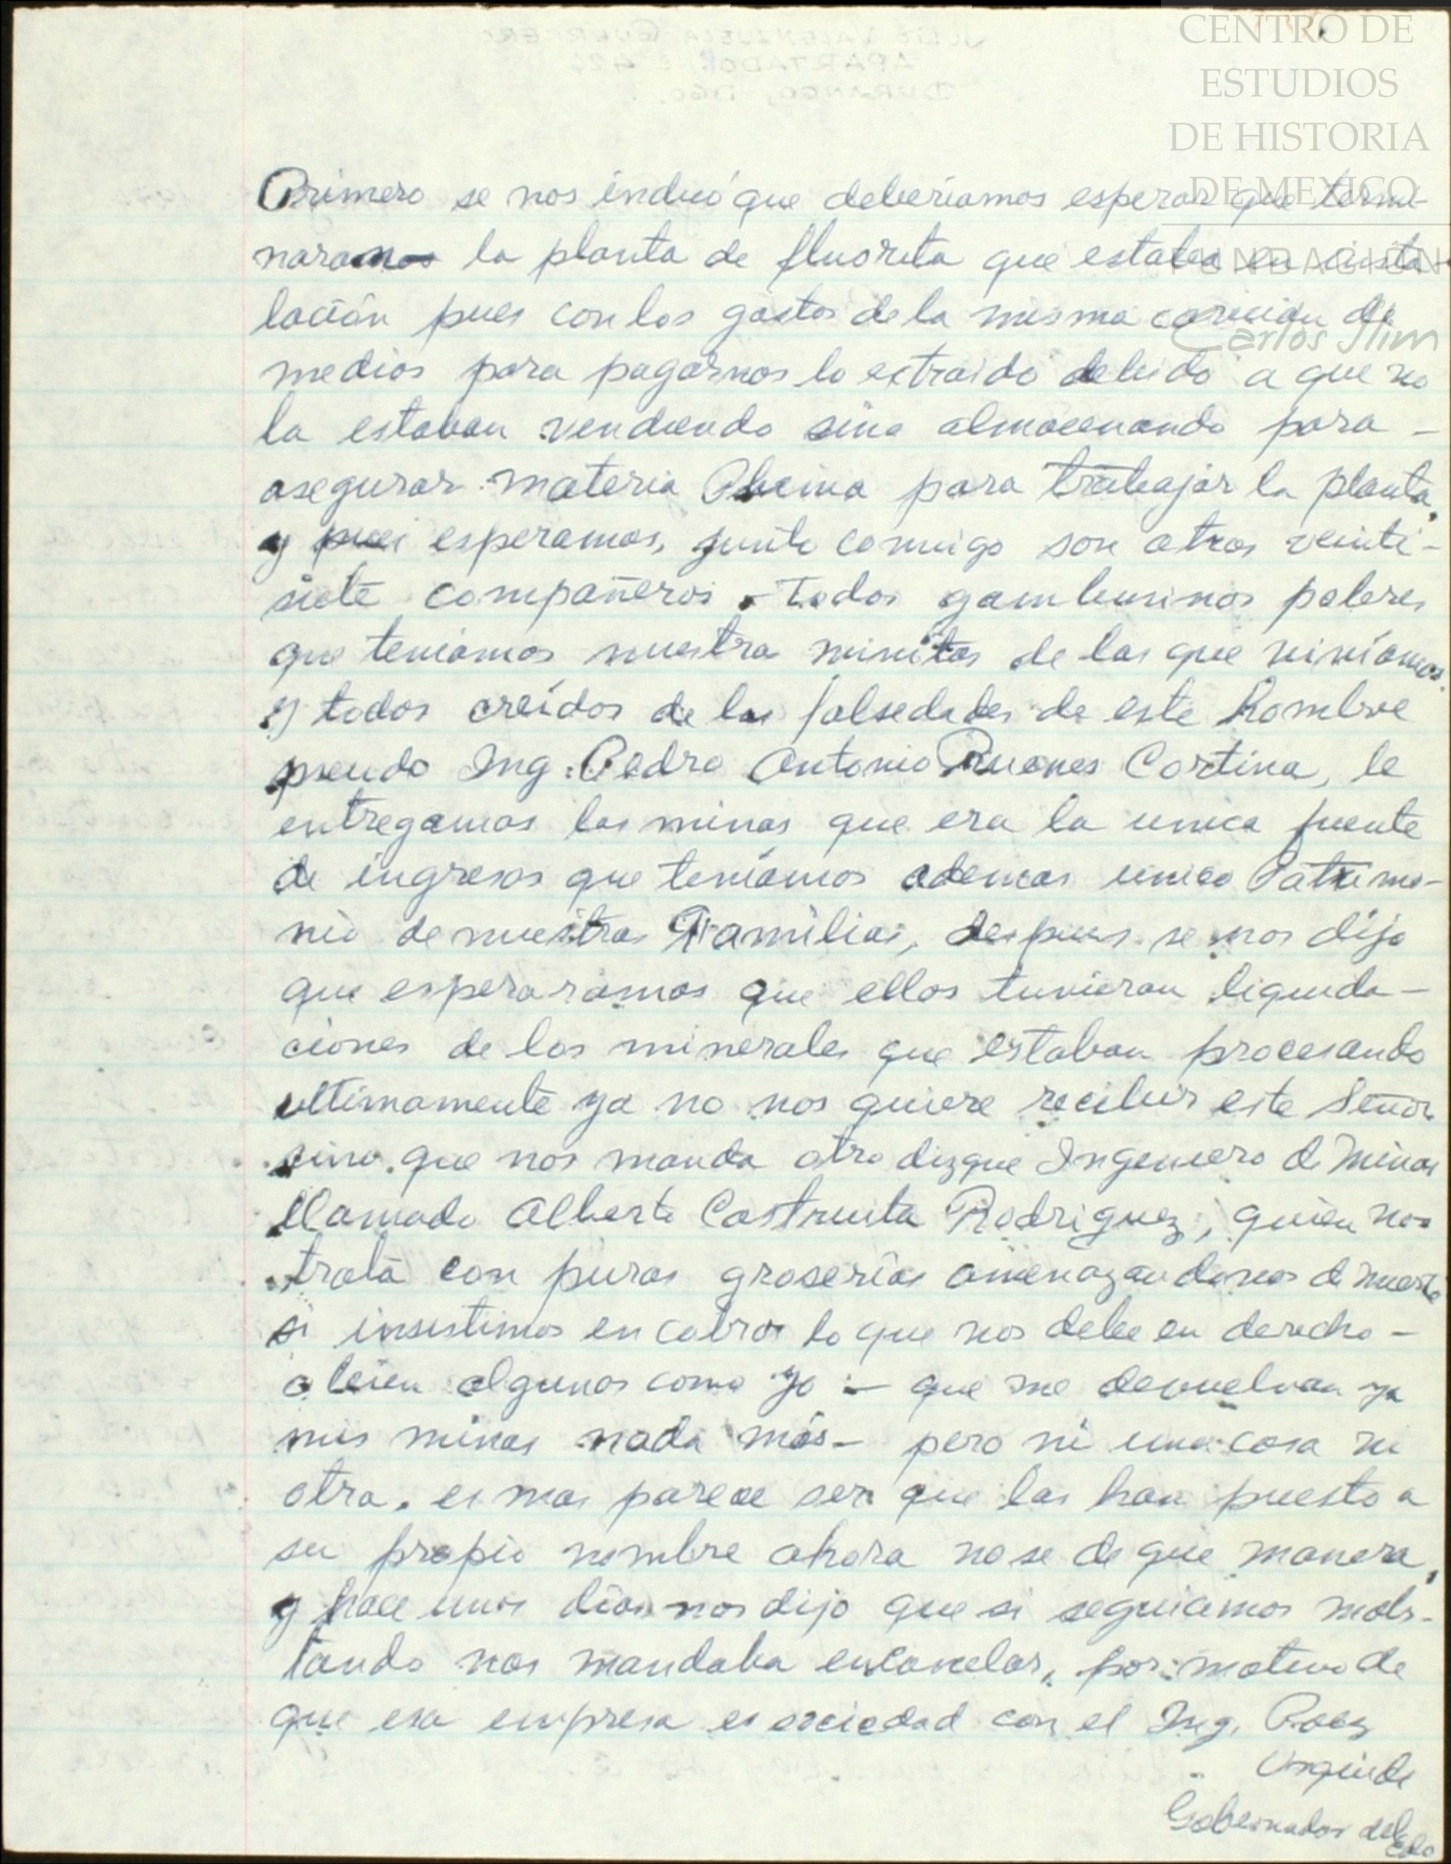 CENTRO DE
ESTUDIOS
DE HISTORIA
DE MEXICO
FUNDACION
Carlos Slim
Primero se nos indicó que deberíamos esperar que termi-
naramos la planta de fluorita que estaba en insta-
lación pues con los gastos de la misma carecian de
medios para pagarnos lo extraido debido a que no
la estaban vendiendo sino almacenando para -
asegurar materia Prima para trabajar la planta,
y pues esperamos, junto conmigo son otros veinti-
siete compañeros. todos gambusinos pobres
que teniamos nuestras minitas de las que viviamos
y todos creídos de las falsedades de este hombre
seudo Ing. Pedro Antonio Cortina, le
entregamos las minas que era la unica fuente
de ingresos que teníamos ademas unico Patrimo-
nio de nuestras Familias, despues se nos dijo
que esperaramos que ellos tuvieran liquida-
ciones de los minerales que estaban procesando
ultimamente ya no nos quiere recibir este Señor
sino que nos manda otro dizque Ingeniero de Minas
llamado Alberto Castruita Rodriguez, quien nos
trata con puras groserías amenazandonos de muerte
si insistimos en cobrar lo que nos debe en derecho -
o bien algunos como yo - que me devuelvan ya
mis minas nada más - pero ni una cosa ni
otra. es mas parece ser que las han puesto a
su propio nombre ahora no se de que manera,
y hace unos días nos dijo que si seguiamos moles-
tando nos mandaba encarcelar, por motivo de
que esa empresa es sociedad con el Ing. Paez
Urquidi
Gobernador del Edo